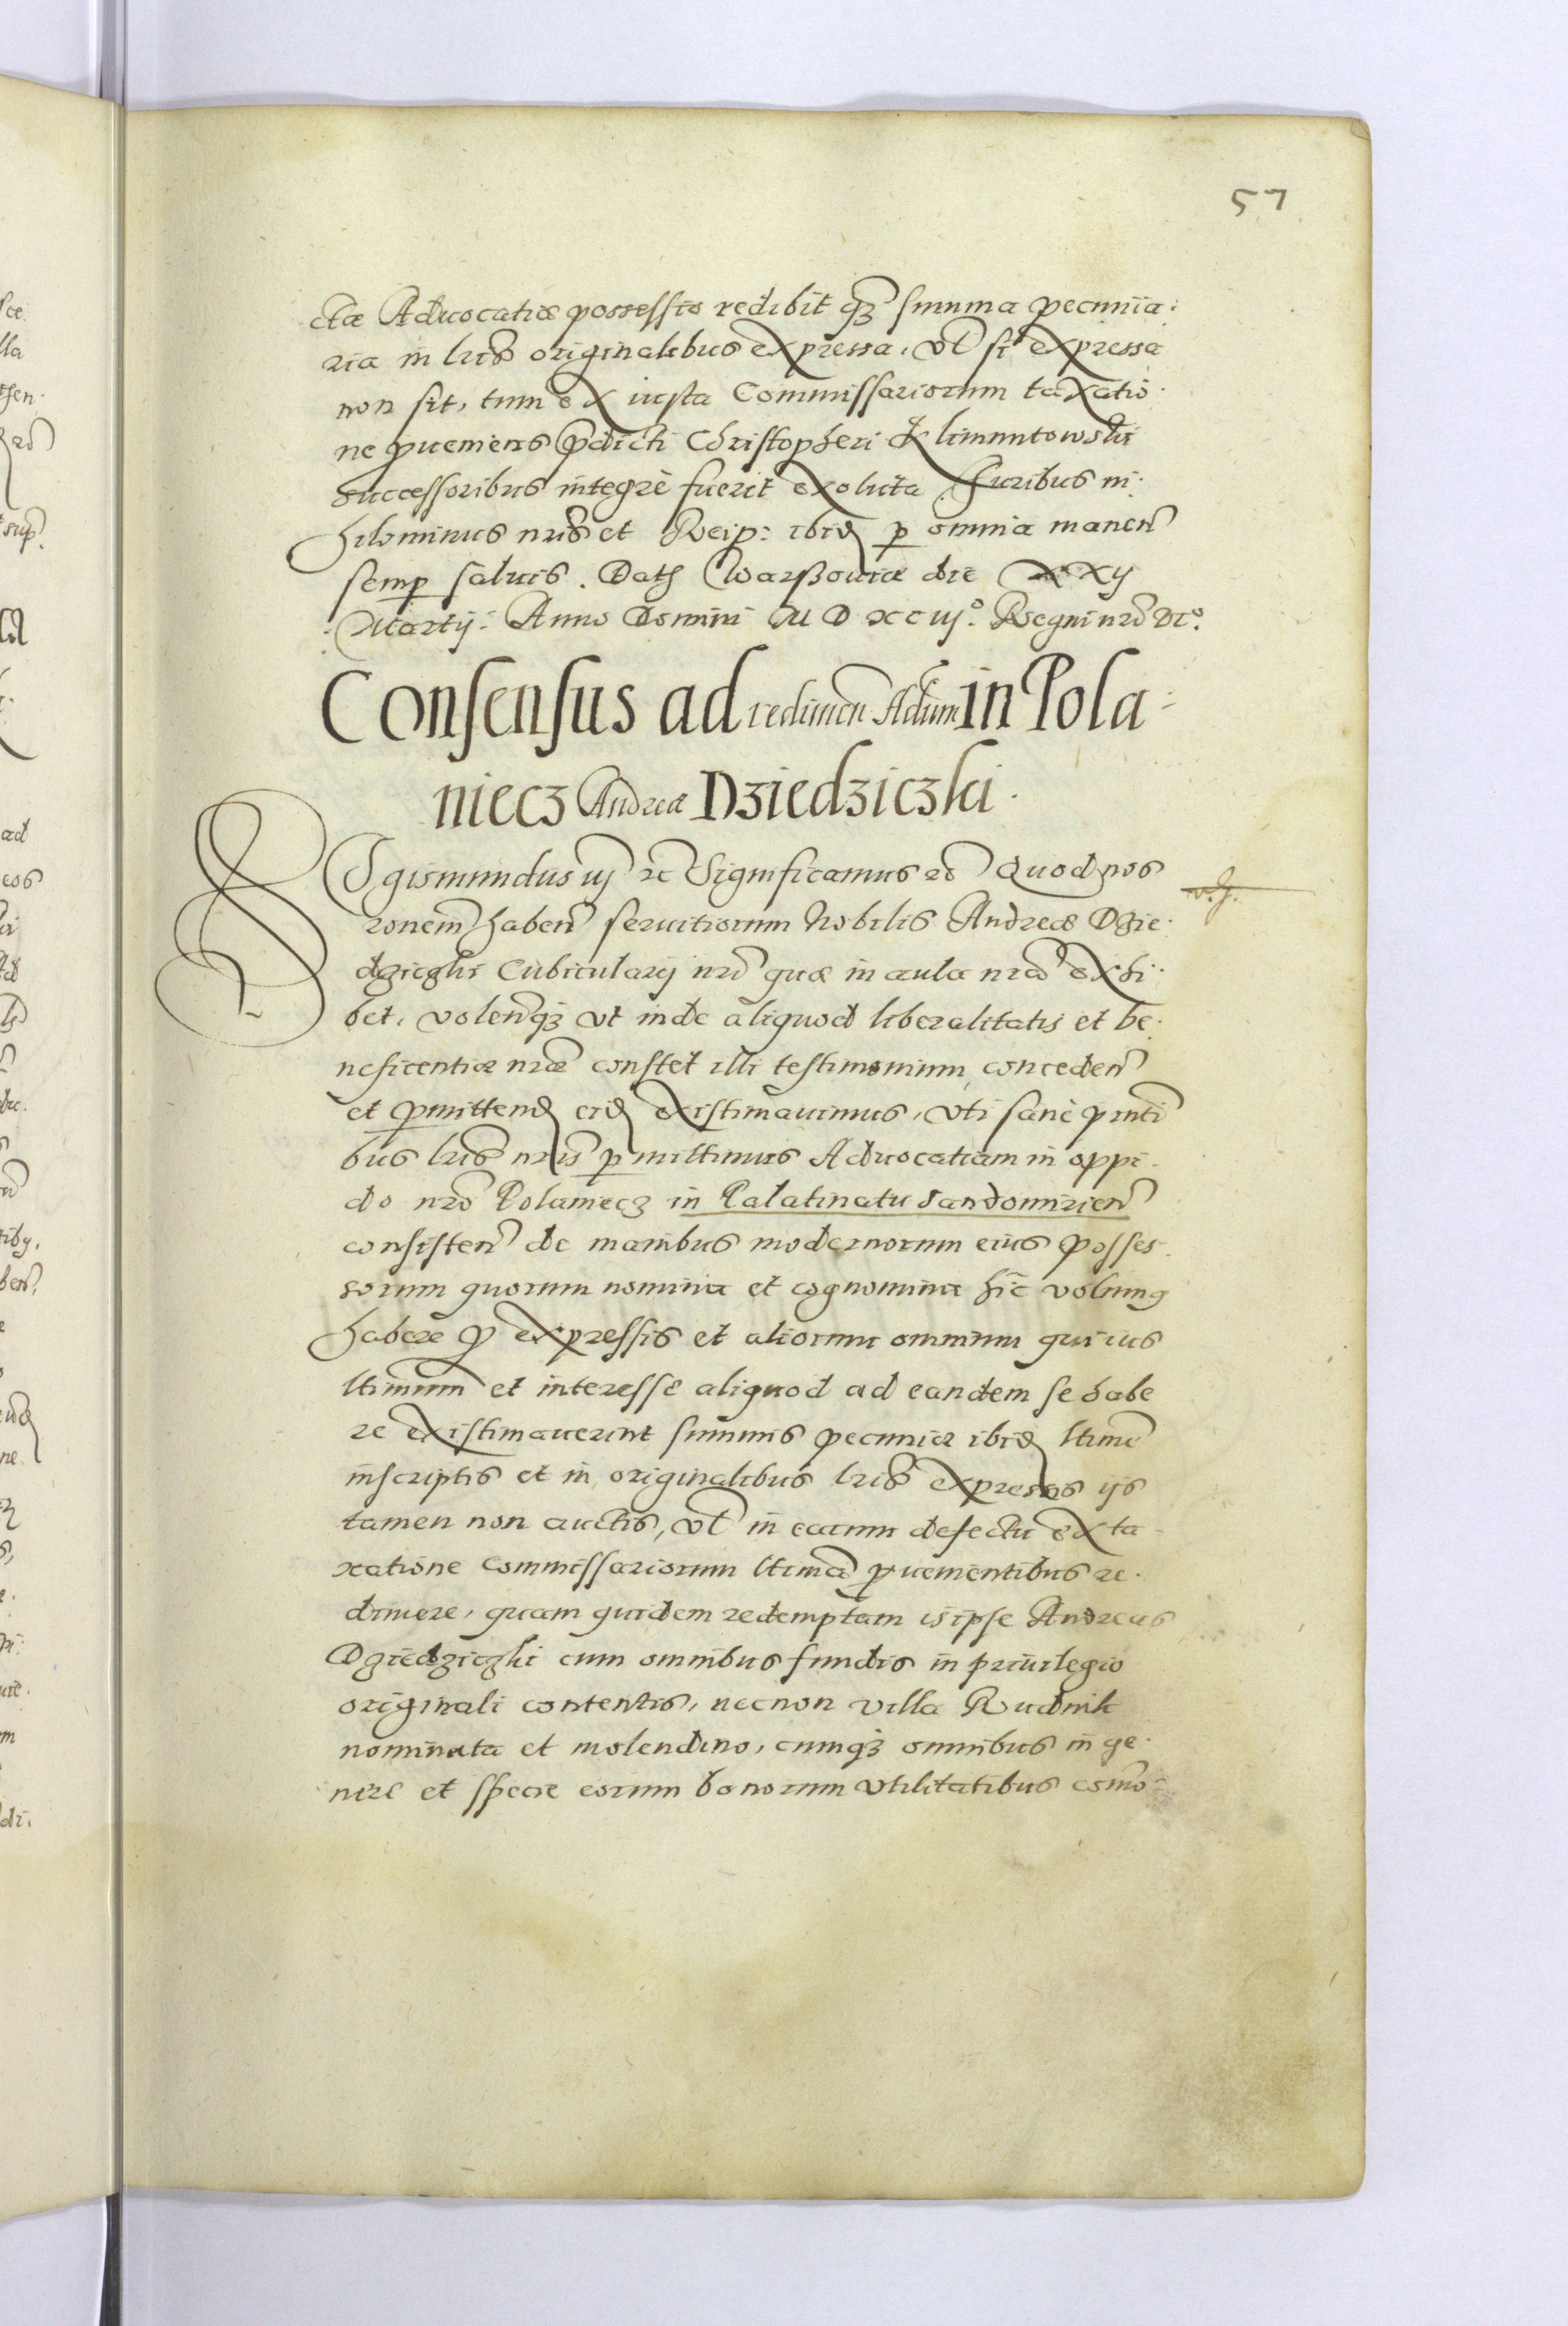 57
ctæ Aduocatiæ possessio redibit qȝ summa pecunia:
ria in lris originalibus expressa, vl si expressa
non sit, tum ex iusta Commissariorum taxatio-
ne proueniens prædicti Christopheri Klimuntowski
successoribus integrè fuerit exoluta. Iuribus ni-
hilominus nris et Reip: ibid per omnia manen
semp saluis. Dat Warssouiæ die XXij
Martij: Anno Domini M D XC iij° Regni nri etc.
Consensus ad redimen Adum in Pola-
niecz Andreæ Dziedziczki.
Sigismundus iij etc Significamus etc Quod nos
ronem haben seruitiorum Nobilis Andreæ Dzie-
dziczki Cubicularij nri quæ in aula nra exhi-
bet, volenqȝ vt inde aliquod liberalitatis et be-
neficentiæ nræ constet illi testimonium, conceden
et permittend eid existimauimus, vti sanè pnti
bus lris nris permittimus Aduocatiam in oppi-
do nro Polaniecz in Palatinatu Sandomirien
consisten de manibus modernorum eius posses-
sorum quorum nomina et cognomina hic volumus
habere pro expressis et aliorum omnium qui ius
ltimum et interesse aliquod ad eandem se habe
re existimauerint summis pecuniæ ibid ltime
inscriptis et in originalibus lris expressis ijs
tamen non auctis, vl in earum defectu ex ta-
xatione commissariorum ltima prouenientibus re-
dimere, quam quidem redemptam is ipse Andreas
Dziedziczki cum omnibus fundis in priuilegio
originali contentis, necnon villa Rudnik
nominata et molendino, cumqȝ omnibus in ge-
nere et specie eorum bonorum vtilitatibus como-